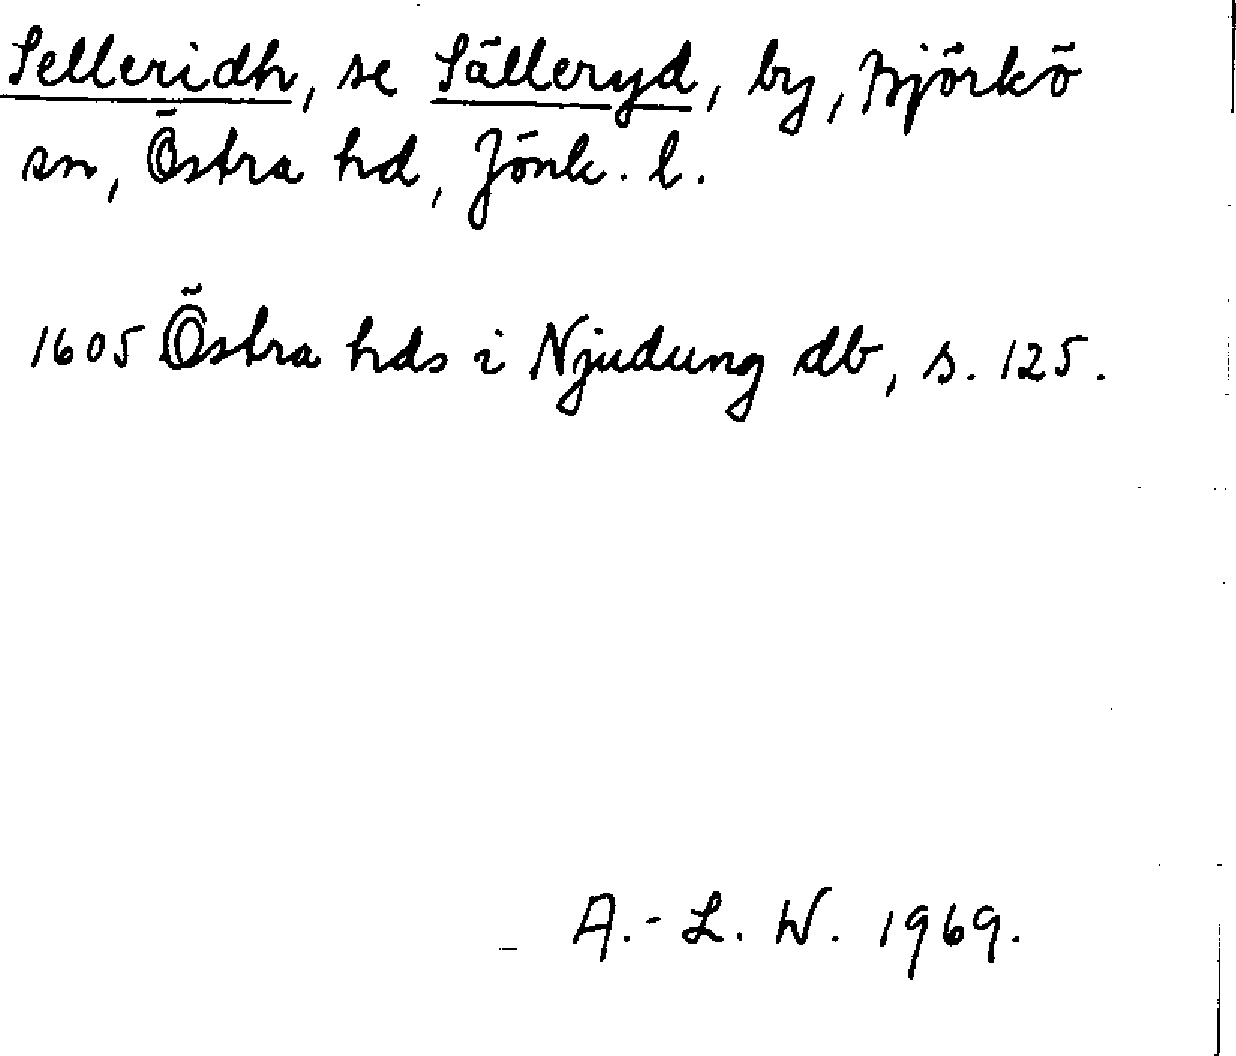 Selleridh, se Sälleryd, by, Björkö
sn, Östra hd, Jönk. l.
1605 Östra hds i Njudung db, s. 125.
A.-L. W. 1969.